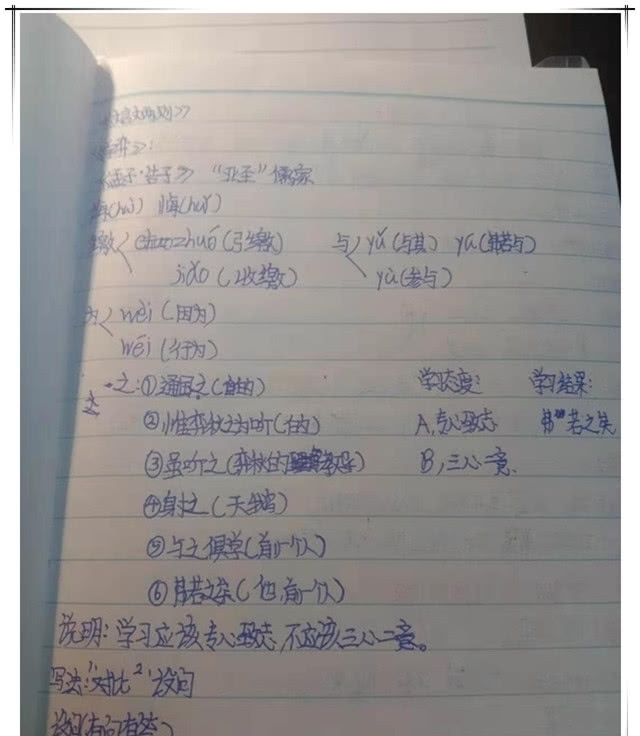 《文言文两则》
《学弈》:
《孟子·告子》 "亚圣" 儒家
诲(huì) 悔(huǐ)
缴 zhuó (弓缴) 与 yǔ (与其) yú (弗若与)
jiǎo (收缴) yù (参与)
为 wèi (因为)
wéi (行为)
之: ①通国之 (的) 学习态度: 学习结果:
②惟弈秋之为听 (的) A, 专心致志 弗若之矣
③虽听之 (弈秋的教导) B, 三心二意.
④射之 (天鹅)
⑤与之俱学 (前一个人)
⑥弗若之矣 (他, 前一个人)
说明: 学习应该专心致志, 不应该三心二意。
写法: 1、对比 2、设问
设问 (有问有答)